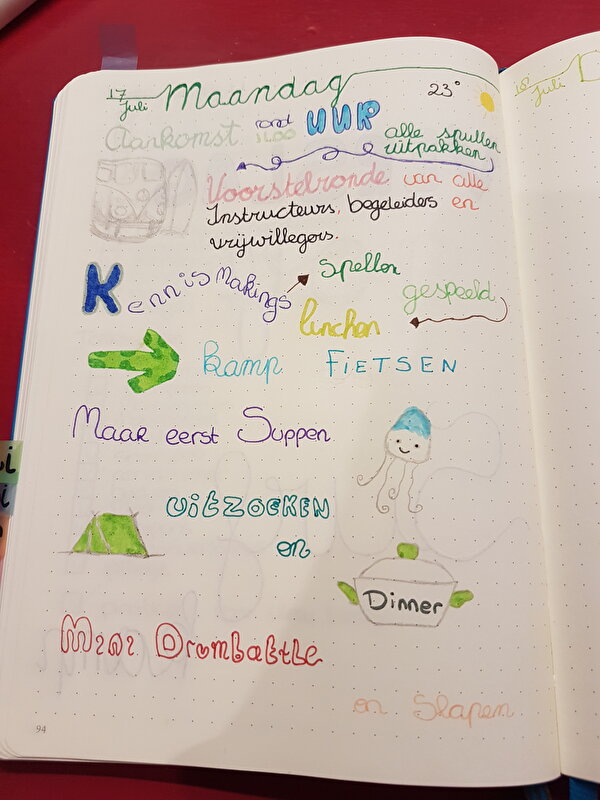 17 juli Maandag 23°
Aankomst rond 11.00 UUR alle spullen uitpakken
Voorstelronde van alle
Instructeurs, begeleiders en
vrijwillegers.
Kennismakings spellen
gespeeld
lunchen
kamp FIETSEN
Maar eerst Suppen
UitZOEKEN
en
Dinner
Mini Drombattle
en Slapen
94
18 juli D